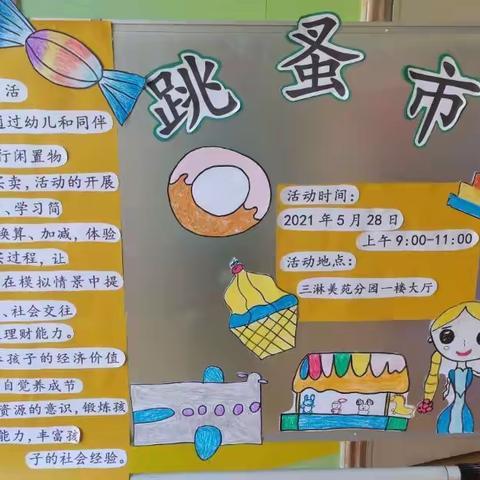 跳蚤市
活
通过幼儿和同伴
行闲置物
买卖,活动的开展
、学习简
换算、加减,体验
买过程,让
在模拟情景中提
、社会交往
理财能力。
孩子的经济价值
自觉养成节
资源的意识,锻炼孩
能力,丰富孩
子的社会经验。
活动时间:
2021年5月28日
上午9:00-11:00
活动地点:
三淋美苑分园一楼大厅